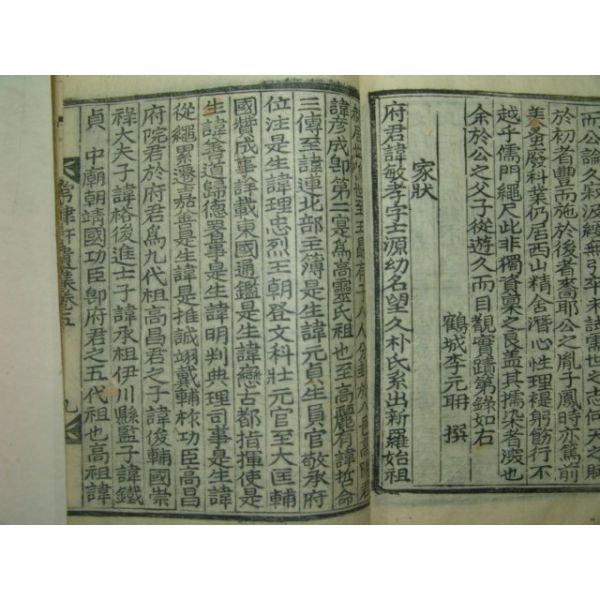 而公論久寂波經無引卒未試需世之志何天之賦
於初者豊而施於後者嗇耶公之胤子鳳時亦篤前
美蚤廢科業仍居西山精舍潛心性理禔躬飭行不
越乎儒門繩尺此非獨資稟之良盖其擩染者深也
余於公之父子從遊久而目觀實蹟第錄如右
鶴城李元冊 撰
家狀
府君諱敏孝字士源幼名望久朴氏系出新羅始祖
諱彦成卽第二寔爲高靈氏祖也至高麗有諱哲命
三傳至諱連北部主簿是生諱元貞生員官敬承府
位注是生諱理忠烈王朝登文科壯元官至大匡輔
國櫕成事詳載東國通鑑是生諱戀古都指揮使是
生諱善道歸德署事是生諱明判典理司事是生諱
從繩累瀑嘉善是生諱推誠翊戴輔祚功臣高昌
府院君於府君爲九代祖高昌君之子諱俊輔國崇
祿大夫子諱格後進士子諱承祖伊川縣監子諱鐵
貞 中廟朝靖國功臣卽府君之五代祖也高祖諱
軒遺集卷五
九